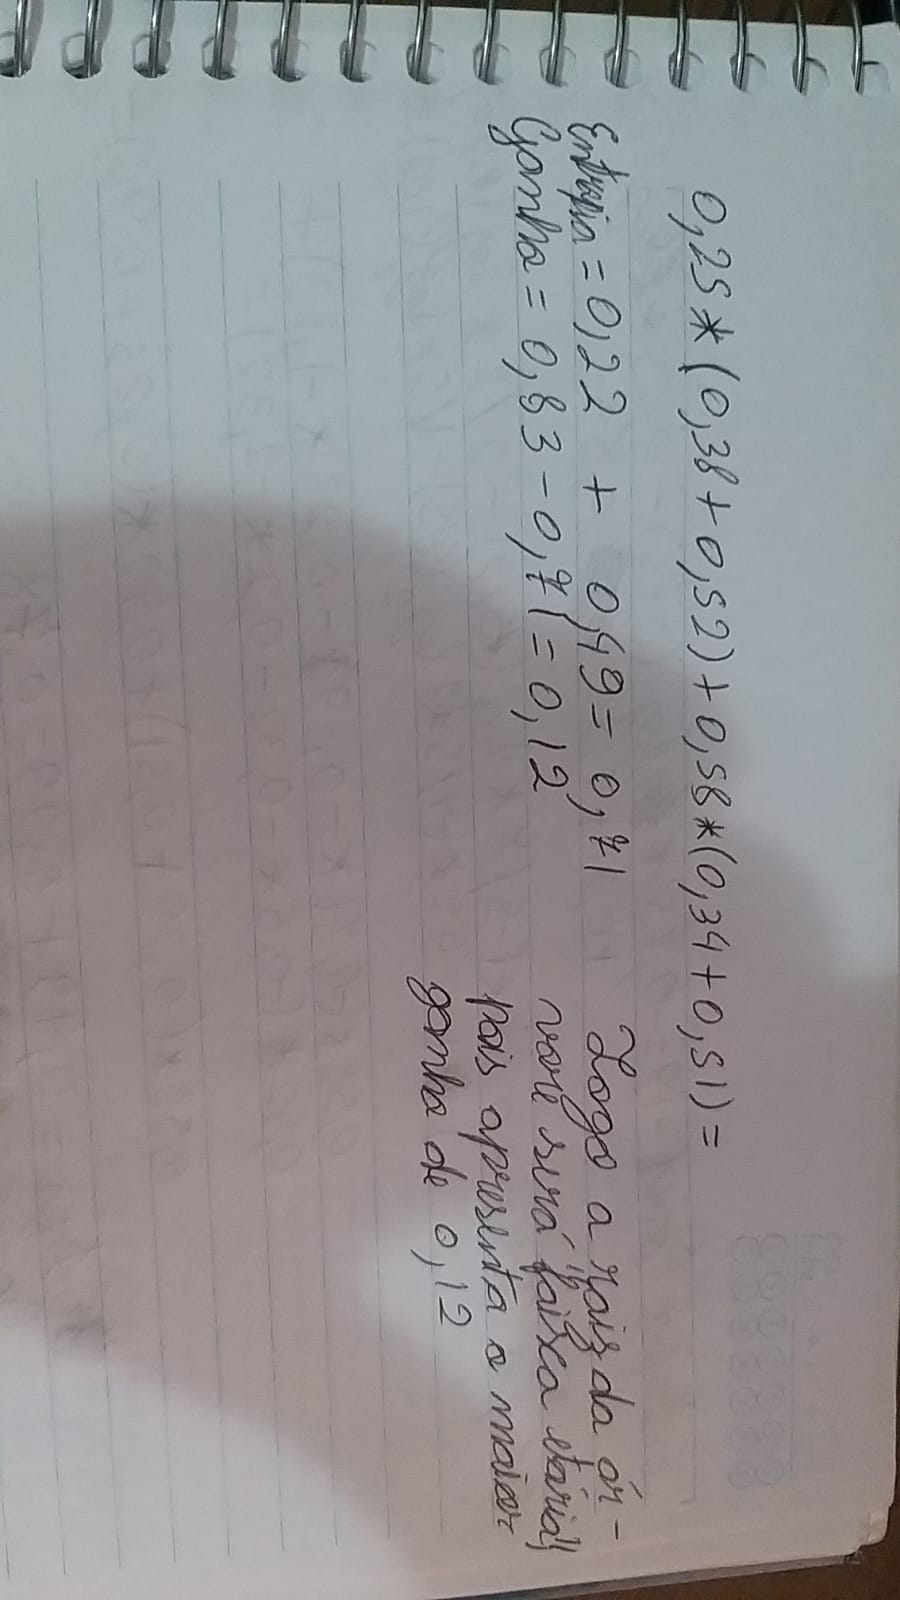 0,25*(0,38+0,52)+0,58*(0,34+0,51)=
Entropia = 0,22 + 0,49 = 0,71
Ganho = 0,83 - 0,71 = 0,12
Logo a raiz da ár-
vore será "faixa etária",
pois apresenta o maior
ganho de 0,12